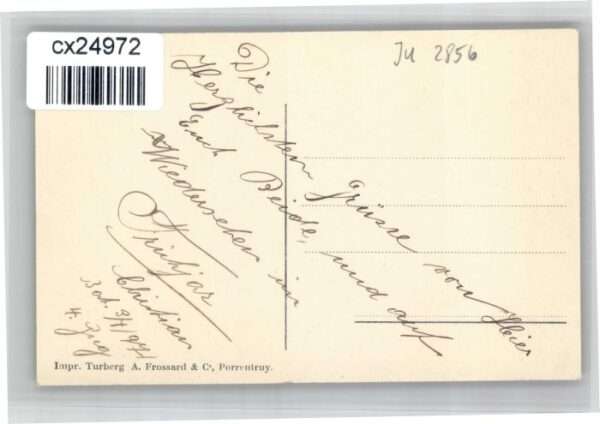 cx24972
JU 2856
Die
Herzlichsten Grüsse von Hier
Euch Beide, und auf
Wiedersehen im
Christian
4. Zug
Impr. Turberg A. Frossard & Cie, Porrentruy.